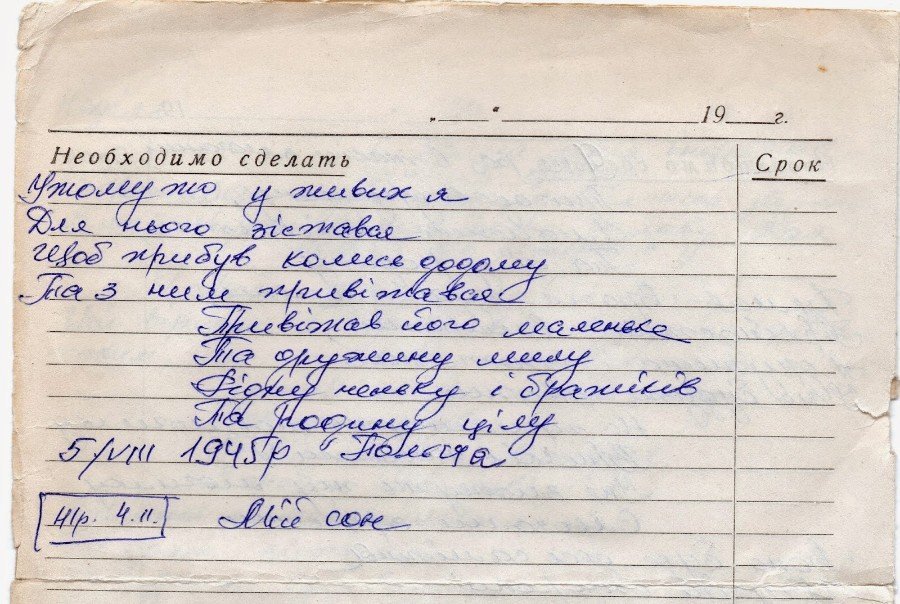 „___“ ____________ 19___г.
Необходимо сделать Срок
Утому то у живих я
Для нього зістався
Щоб прибув колись додому
Та з ним привітався
Привітав його маленьке
Та дружину милу
Рідну неньку і братіків
Та родину цілу
5/VIII 1945р Польща
Мій сон